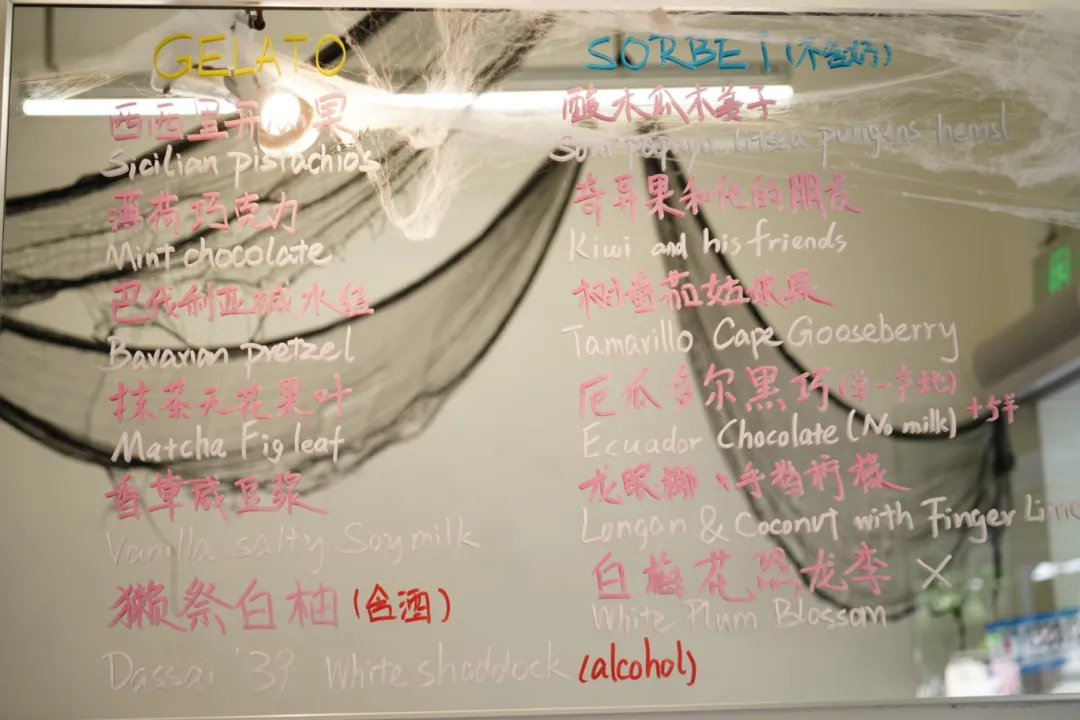 GELATO
西西里开心果
Sicilian pistachios
薄荷巧克力
Mint chocolate
巴伐利亚碱水结
Bavarian pretzel
抹茶无花果叶
Matcha Fig leaf
香草咸豆浆
Vanilla salty Soymilk
獭祭白柚(含酒)
Dassai '39 White shaddock (alcohol)
SORBET(不含奶)
酸木瓜木姜子
Sour papaya litsea pungens hemsl
奇异果和他的朋友
Kiwi and his friends
树番茄姑娘果
Tamarillo Cape Gooseberry
厄瓜多尔黑巧(单一产地)
Ecuador Chocolate (No milk) +5¥
龙眼椰x手指柠檬
Longan & Coconut with Finger Lime
白梅花恐龙李 ×
White Plum Blossom